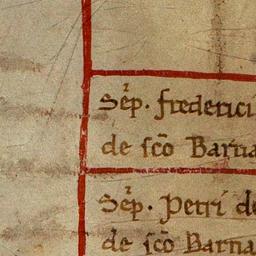 Sep̄. frederici
de sc̄o Barna
Sep̄. Petri de
de sc̄o Barna